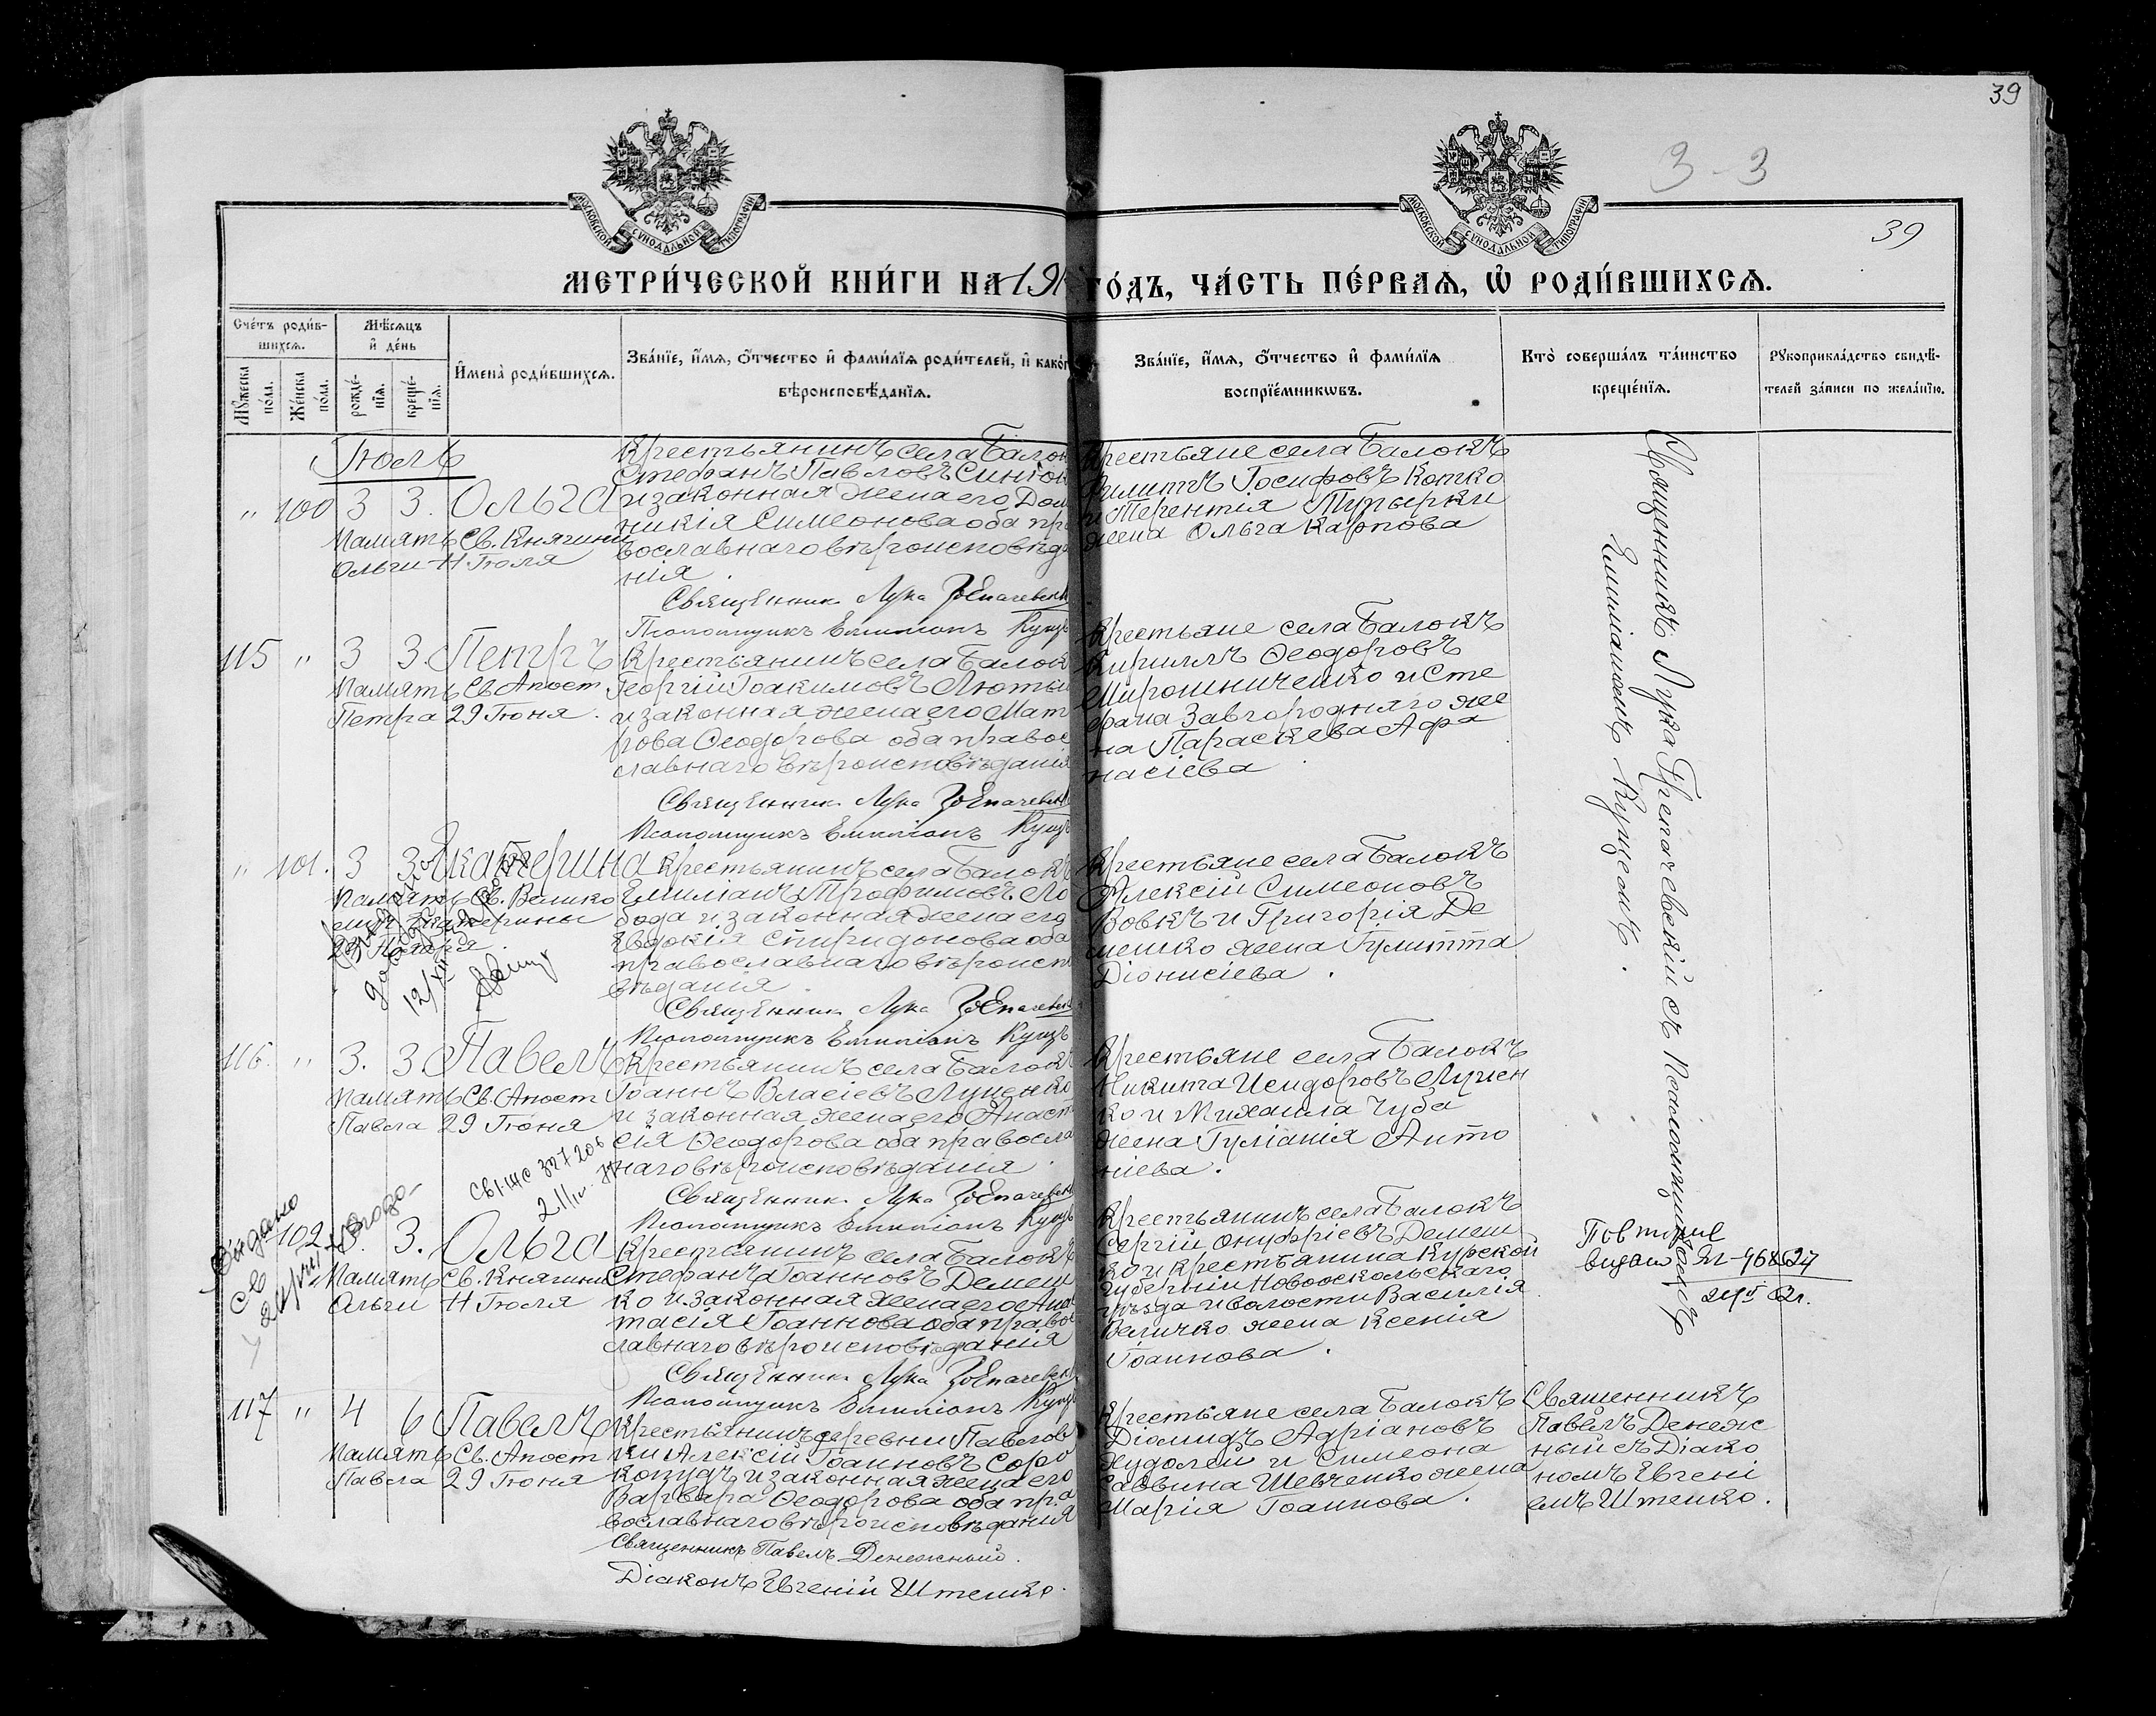 39
3-3
39
МОСКОВСКОЙ СѴНОДАЛЬНОЙ ТИПОГРАФІИ
МОСКОВСКОЙ СѴНОДАЛЬНОЙ ТИПОГРАФІИ
МЕТРИ́ЧЕСКОЙ КНИ́ГИ НА 191 ГО́ДЪ, ЧА́СТЬ ПЕ́РВАѦ, Ѡ҆ РОДИ́ВШИХСѦ.
Сче́тъ роди́в-
шихсѧ.
Мѣ́сѧцъ
и҆ де́нь
Мꙋ́жеска
по́ла.
Же́нска
по́ла.
рожде́-
нїѧ.
креще́-
нїѧ.
И҆мена̀ роди́вшихсѧ.
Зва́нїе, и҆́мѧ, ѻ҆́тчество и҆ фами́лїѧ роди́телей, и҆ како́г
вѣроисповѣ́данїѧ.
Зва́нїе, и҆́мѧ, ѻ҆́тчество и҆ фами́лїѧ
воспрїе́мникѡвъ.
Кто̀ соверша́лъ та́инство
креще́нїѧ.
Рꙋкоприкла́дство свидѣ́-
телей за́писи по жела́нїю.
Іюль
" 100 3 3. Ольга
Память Св. Княгини
Ольги 11 Іюля
Крестьянинъ села Балок
Стефанъ Павловъ Синюк
и законная жена его Дом
никія Симеонова оба пра
вославнаго вѣроисповѣда
нія.
Священник Лука
Псаломщикъ Емиліанъ Куцъ
Крестьяне села Балокъ
Филиппъ Іосифовъ Котко
и Терентія Пупырки
жена Ольга Карпова
115 " 3 3. Петръ
Память Св. Апост
Петра 29 Іюня.
Крестьянинъ села Балок
Георгій Іоакимовъ Лютый
и законная жена его Мат
рова Ѳеодорова оба правос
славнаго вѣроисповѣданія
Священник Лука
Псаломщикъ Емиліанъ Куцъ
Крестьяне села Балокъ
Кириллъ Ѳеодоровъ
Мирошниченко и Сте
фана Завгородняго же
на Параскева Афа
насіева
" 101. 3 3 Екатерина
Память Св. Велико
муч. Екатерины
24 Ноября.
12/XII
Крестьянинъ села Балокъ
Емиліанъ Трофимовъ Ло
бода и законная жена его
Евдокія Спиридонова оба
православнаго вѣроиспо
вѣданія.
Священник Лука
Псаломщикъ Емиліанъ Куцъ
Крестьяне села Балокъ
Алексій Симеоновъ
Вовкъ и Григорія Де
мешко жена Іулитта
Діонисіева.
116. " 3. 3. Павелъ
Память Св. Апост
Павла 29 Іюня
Крестьянинъ села Балокъ
Іоаннъ Власіевъ Луценко
и законная жена его Анаст
сія Ѳеодорова оба правосла
наго вѣроисповѣданія.
Священник Лука
Псаломщикъ Емиліанъ Куцъ
Крестьяне села Балокъ
Никита Исидоровъ Луцен
ко и Михаила Чуба
жена Іуліанія Анто
ніева.
Выдано
102 3. Ольга
Память Св. Княгини
Ольги 11 Іюля
Крестьянинъ села Балокъ
Стефанъ Іоанновъ Демеш
ко и законная жена его Анас
тасія Іоаннова оба право
славнаго вѣроисповѣданія
Священник Лука
Псаломщикъ Емиліанъ Куцъ
Крестьянинъ села Балокъ
Сергій Онуфріевъ Демеш
ко и крестьянина Курской
губерніи Новооскольскаго
уѣзда и волости Василія
Величко жена Ксенія
Іоаннова.
Священникъ Лука Грепачевскій съ Псаломщикомъ
Емиліаномъ Куцомъ.
Повторне
117 " 4 6 Павелъ
Память Св. Апост
Павла 29 Іюня
Крестьянинъ деревни Павлов
ки Алексій Іоанновъ Соро
копудъ и законная жена его
Варвара Ѳеодорова оба пра
вославнаго вѣроисповѣданія
Священникъ Павелъ Денежный.
Діаконъ Евгеній Штенко.
Крестьяне села Балокъ
Діомидъ Адріановъ
Нудолей и Симеона
Саввина Шевченко жена
Марія Іоаннова.
Священникъ
Павелъ Денеж
ный съ Діако
номъ Евгені
емъ Штенко.